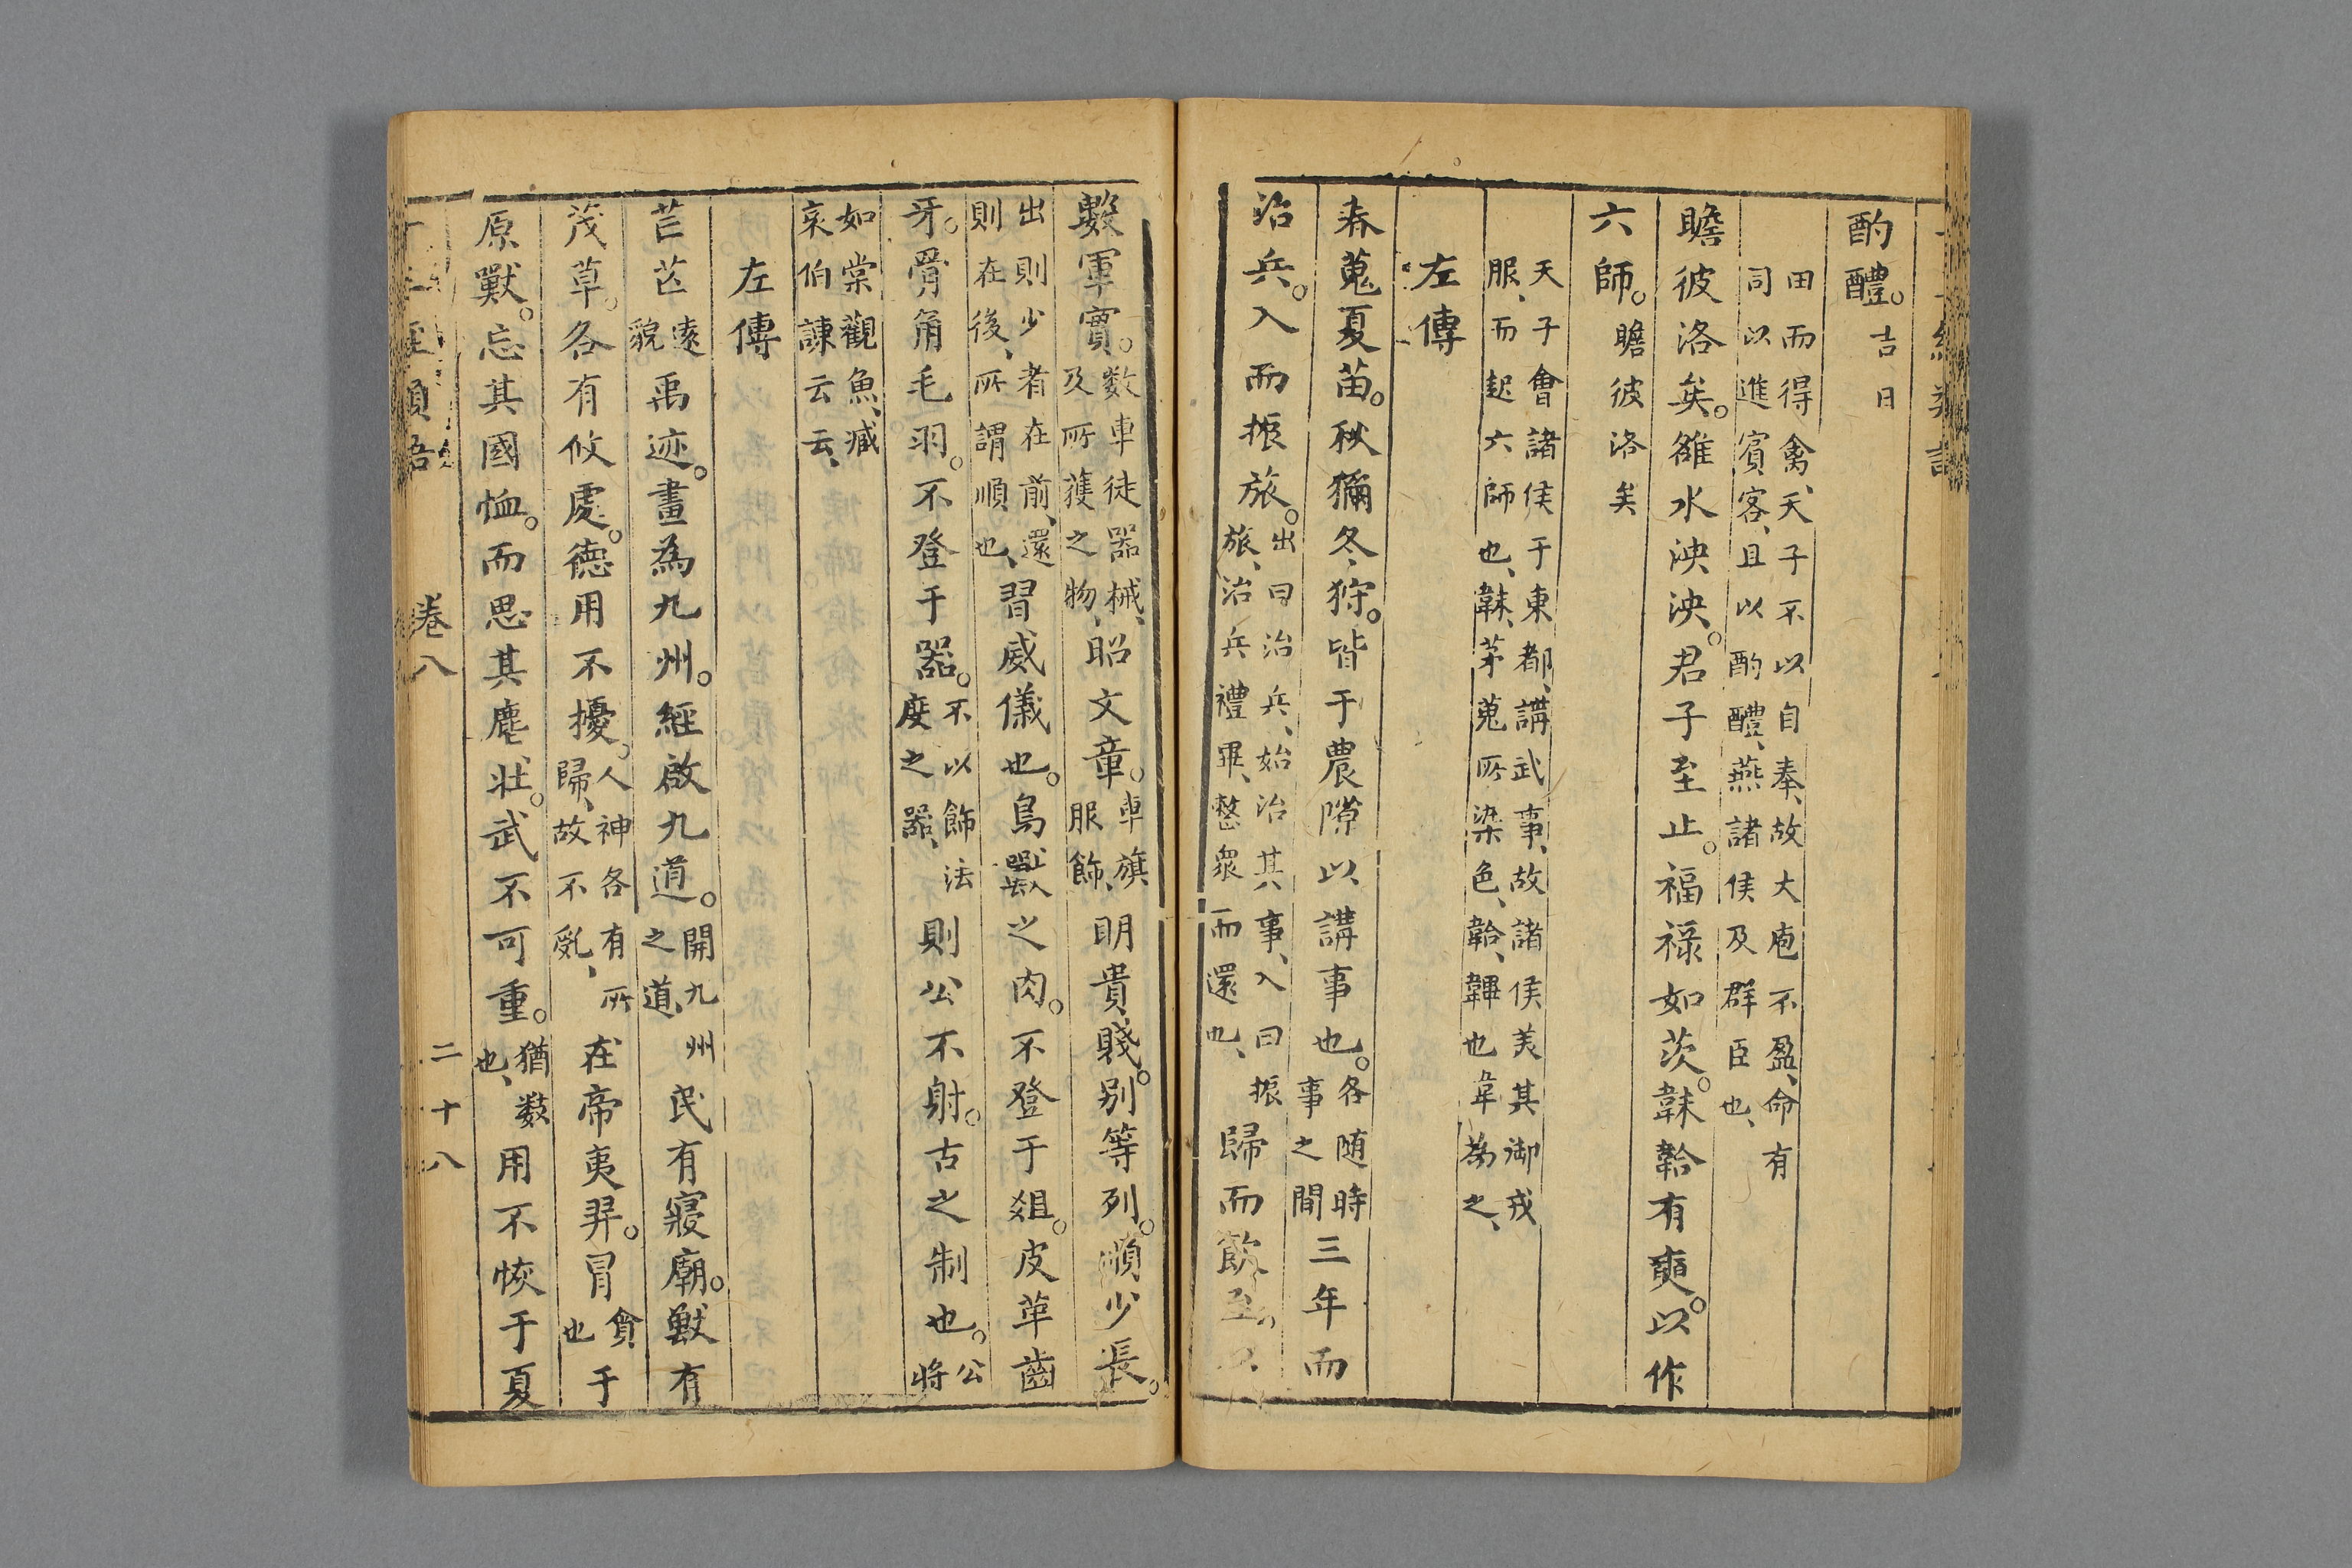 酌醴。吉日
田而得禽、天子不以自奉、故大庖不盈、命有
司以進賓客、且以酌醴、燕諸侯及群臣也、
瞻彼洛矣。雒水泱泱。君子至止。福祿如茨。韎韐有奭。以作
六師。瞻彼洛矣
天子會諸侯于東都、講武事、故諸侯美其御戎
服、而起六師也、韎、茅蒐所染色、韐、韠也韋為之、
左傳
春蒐夏苗。秋獮冬狩。皆于農隙以講事也。各随時事之間三年而
治兵。入而振旅。出曰治兵、始治其事、入曰振旅、治兵禮畢、整衆而還也、歸而飲至。以
數軍實。数車徒器械、及所獲之物、昭文章。車旗服飾、明貴賤。别等列。順少長。
出則少者在前、還則在後、所謂順也、習威儀也。鳥獸之肉。不登于俎。皮革齒
牙。骨角毛羽。不登于器。不以飾法度之器、則公不射。古之制也。公將
如棠觀魚、臧哀伯諫云云、
左傳
芒芒遠貌禹迹。畫為九州。經啟九道。開九州之道、民有寢廟。獸有
茂草。各有攸處。德用不擾。人神各有所歸、故不亂、在帝夷羿。冒貪也于
原獸。忘其國恤。而思其麀牡。武不可重。猶数也、用不恢于夏
卷八
二十八